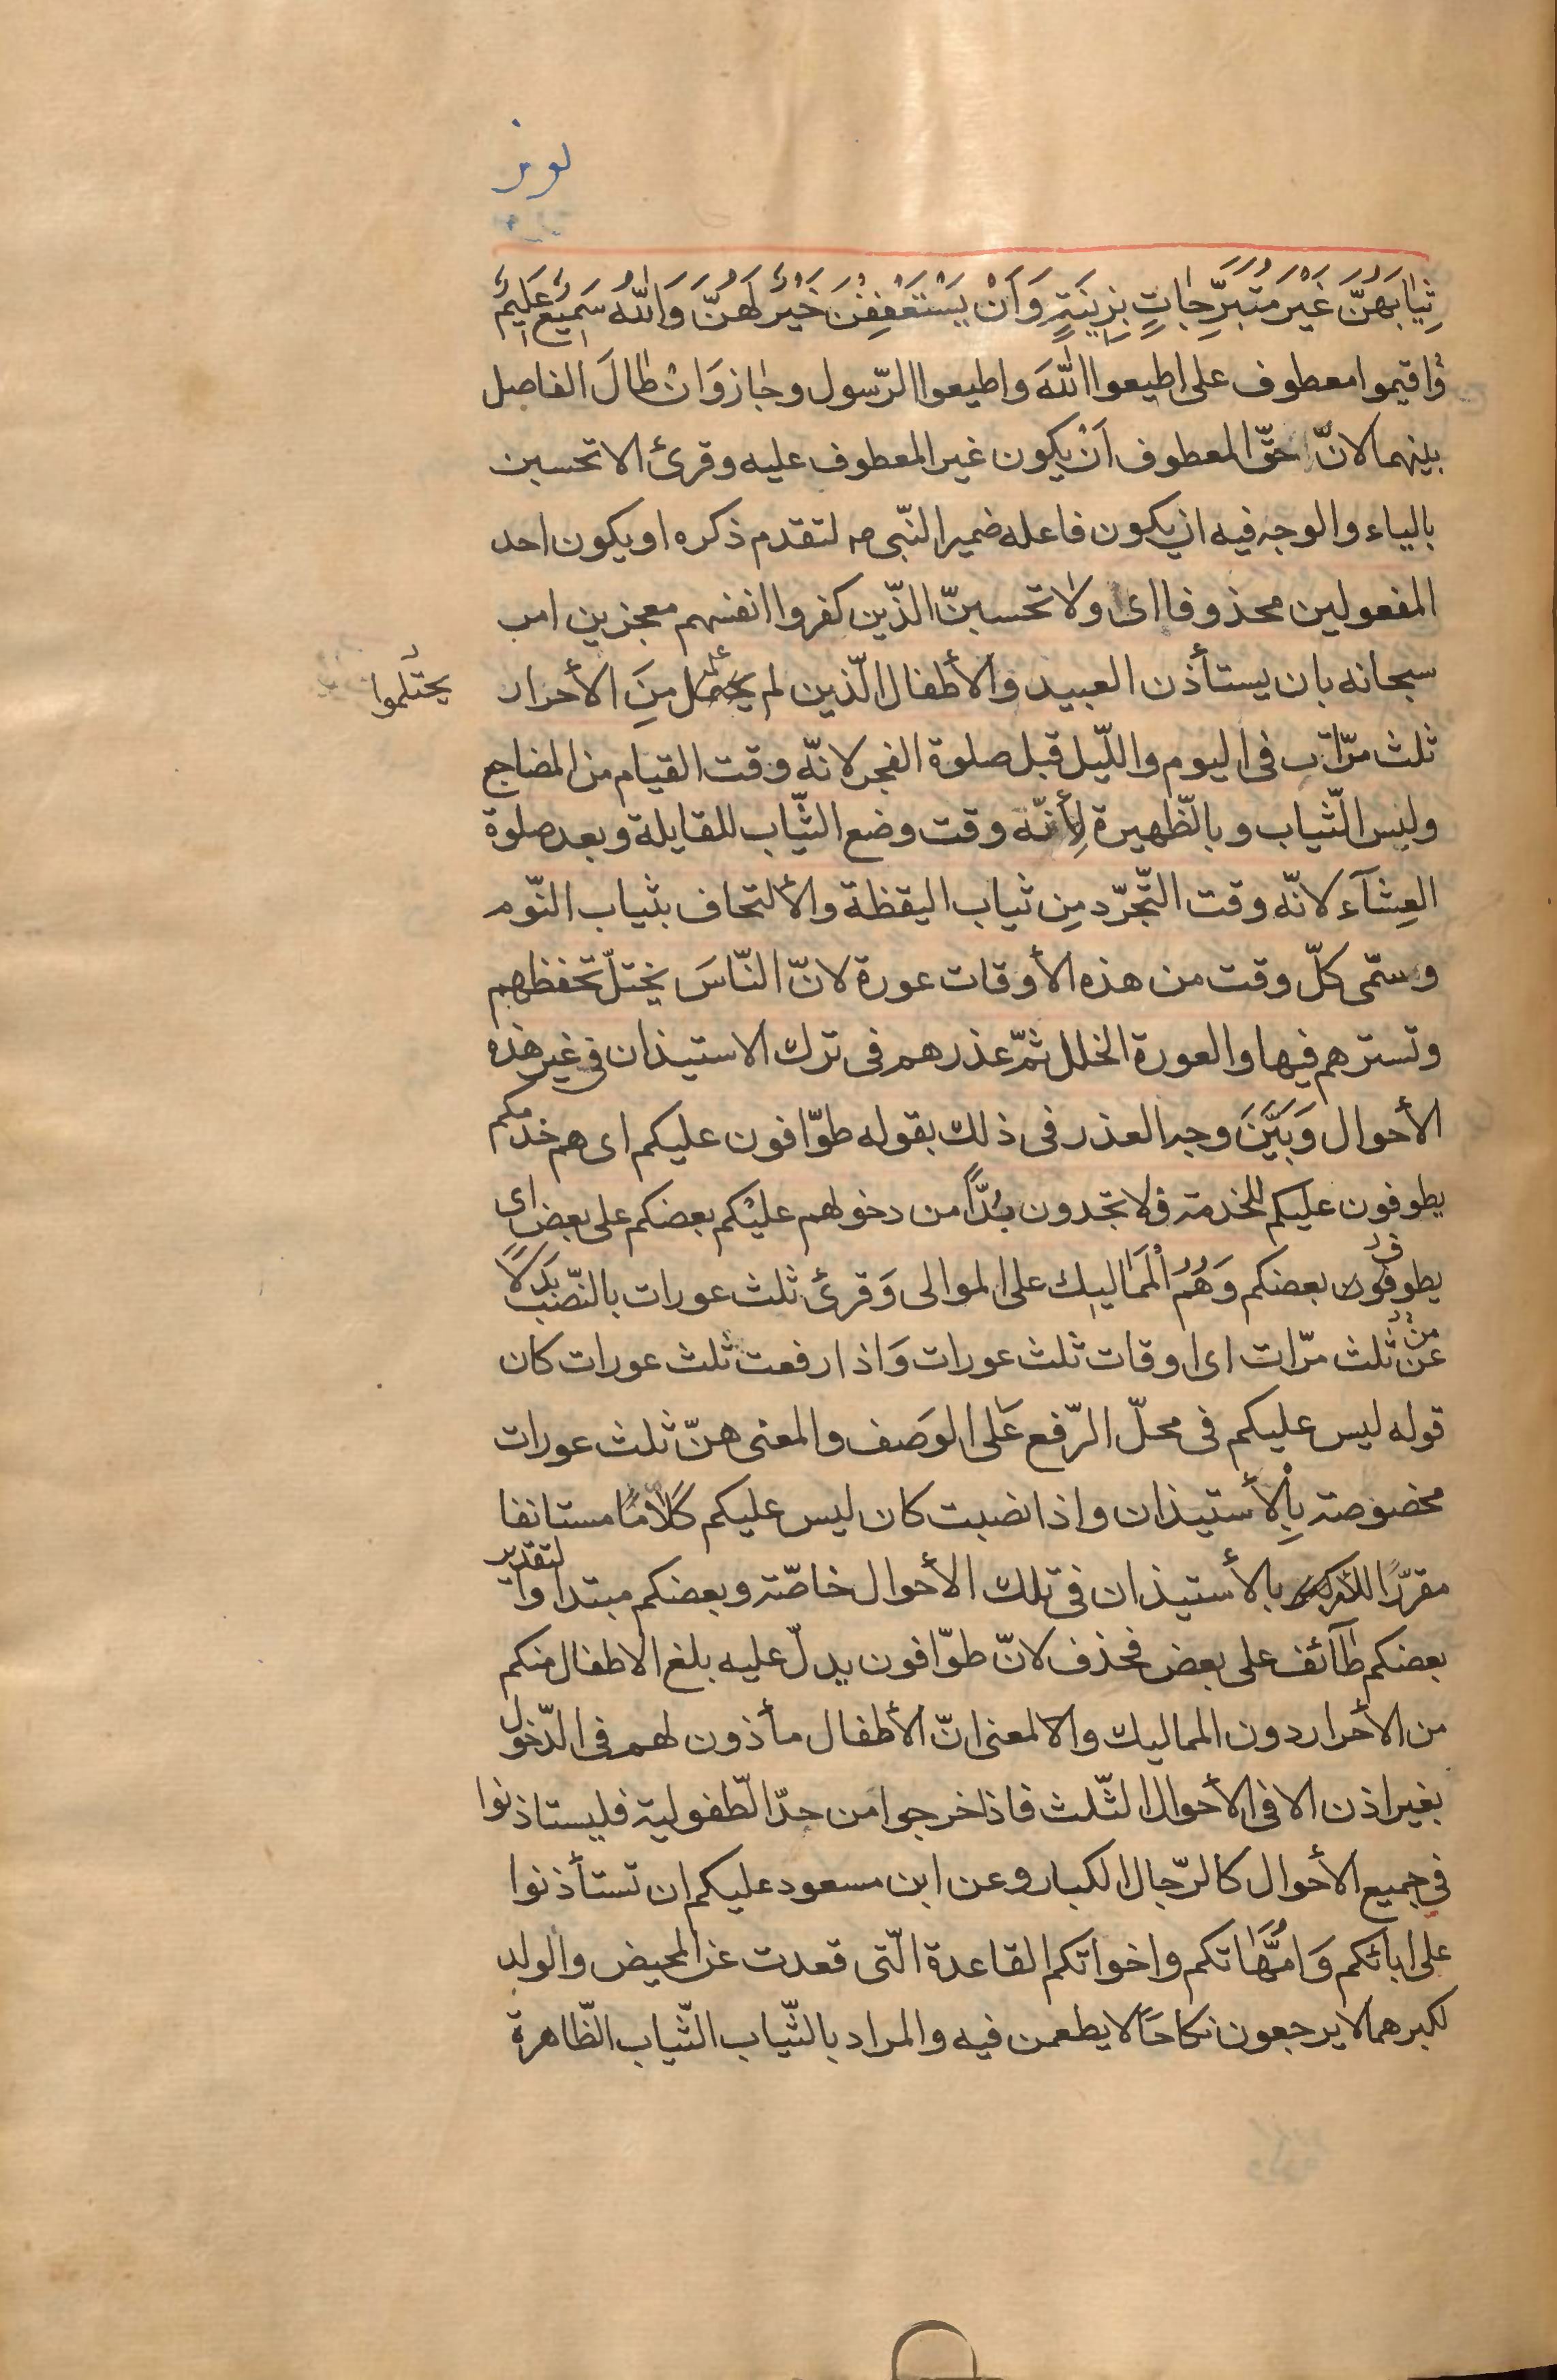 ثِيٰابَهُنَّ غَيْرَ مُتَبَرِّجٰاتٍ بِزِينَةٍ وَاَنْ يَسْتَعْفِفْنَ خَيْرٌ لَهُنَّ وَاللّٰهُ سَمِيْعٌ عَلِيمٌ
وَاقيموا معطوف على اطيعوا اللّٰهَ واطيعوا الرّسول وجٰاز وَانْ طٰالَ الفاصل
بينهما لانّ حقّ المعطوف اَنْ يكون غير المعطوف عليه وقرئ الا تحسبن
بالياء والوجه فيه ان يكون فاعله ضمير النّبى ص لتقدم ذكره او يكون احد
المفعولين محذوفا اى ولا تحسبنّ الذّين كفروا انفسهم معجزين امر
سبحانه بان يستأذن العبيد والأطفال الّذين لم مِنَ الأحرار
يحتلموا
ثلث مرّات فى اليوم واللّيل قبل صلوة الفجر لانّه وقت القيام من المضاجع
ولبس الثّياب وبالظّهيرة لِأنّه وقت وضع الثّياب للقايلة وبعد صلوة
العِشآء لانّه وقت التّجرّد مِن ثياب اليقظة والألتحاف بثياب النّوم
وسمّى كلّ وقت من هذه الأوقات عورة لانّ النّاسَ يختلّ تحفظهم
وتسترهم فيها والعورة الخلل ثمّ عذرهم فى ترك الاستيذان فى غير هذه
الأحوال وَبَيَّنَ وجه العذر فى ذلك بقوله طوّافون عليكم اى هم خدمكم
يطوفون عليكم للخدمة فلا تجدون بُدّاً من دخولهم عليْكم بعضكم على بعض اى
يطوف بعضكم وَهُمُ الْمَمٰاليك على الموالى وَقرئ ثلث عورات بالنّصب بَدَلاً
من ثلث مرّات اى اوقات ثلث عورات وَاذا رفعت ثلث عورات كان
قوله ليس عليكم فى محلّ الرّفع عَلى الوَصف والمعنى هنّ ثلث عورات
مخصوصة بِالْأستيذان واذا نصبت كان ليس عليكم كَلاٰمًا مستانفا
مقررًا بالأستيذان فى تلك الأحوال خاصّة وبعضكم مبتدا وا لتقدير
بعضكم طآئف على بعض فحذف لانّ طوّافون يدلّ عليه بلغ الاطفال منكم
من الأحرار دون المماليك والالمعنى انّ الأطفال مأذون لهم فى الدّخول
بغير اذن الا فى الأحوال الثّلث فاذا خرجوا من حدّ الطّفولية فليستاذنوا
فى جميع الأحوال كالرّجال الكبار وعن ابن مسعود عليكم ان تستأذنوا
على ابائكم وَامَّهٰاتكم واخواتكم القاعدة الّتى قعدت عن المحيض والولد
لكبرهما لا يرجعون نكاحًا لا يطعمن فيه والمراد بالثّياب الثّياب الظّاهرة